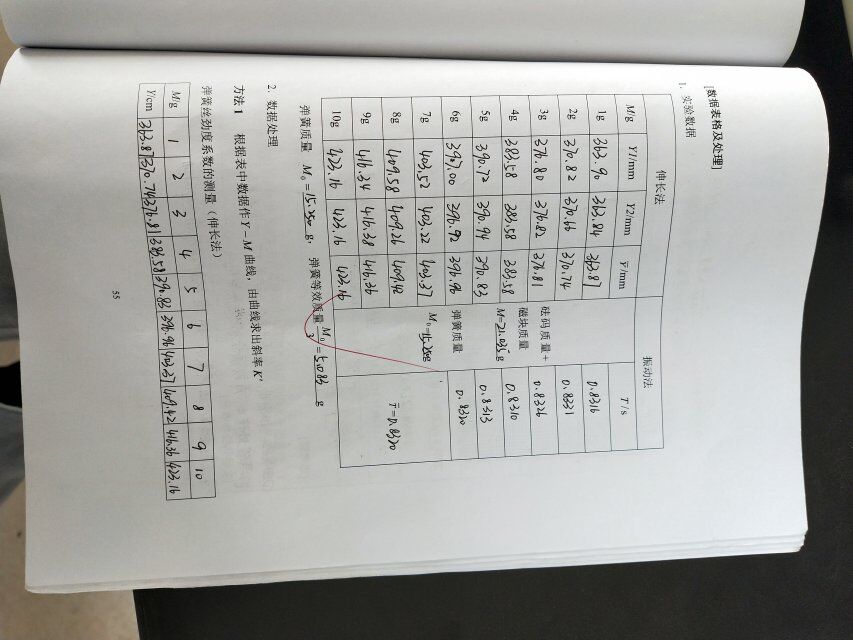 [数据表格及处理]
1. 实验数据
伸长法 振动法
M/g Y1/mm Y2/mm Y̅/mm T/s
1g 363.90 363.84 363.87 0.8316
2g 370.82 370.66 370.74 砝码质量+ 0.8331
3g 376.80 376.82 376.81 磁块质量 0.8326
4g 383.58 383.58 383.58 M=21.035g 0.8310
5g 390.72 390.94 390.83 0.8313
6g 397.00 396.92 396.96 弹簧质量 0.8320
7g 403.52 403.22 403.37 M₀=15.250g
8g 409.58 409.26 409.42 T̅=0.8320
9g 416.34 416.38 416.36
10g 423.16 423.16 423.16
弹簧质量 M₀=15.250 g. 弹簧等效质量 M₀/3=5.083 g
2. 数据处理
方法1 根据表中数据作Y-M曲线,由曲线求出斜率K'
弹簧丝劲度系数的测量(伸长法)
M/g 1 2 3 4 5 6 7 8 9 10
Y/cm 363.87 370.74 376.81 383.58 390.83 396.96 403.37 409.42 416.36 423.16
55